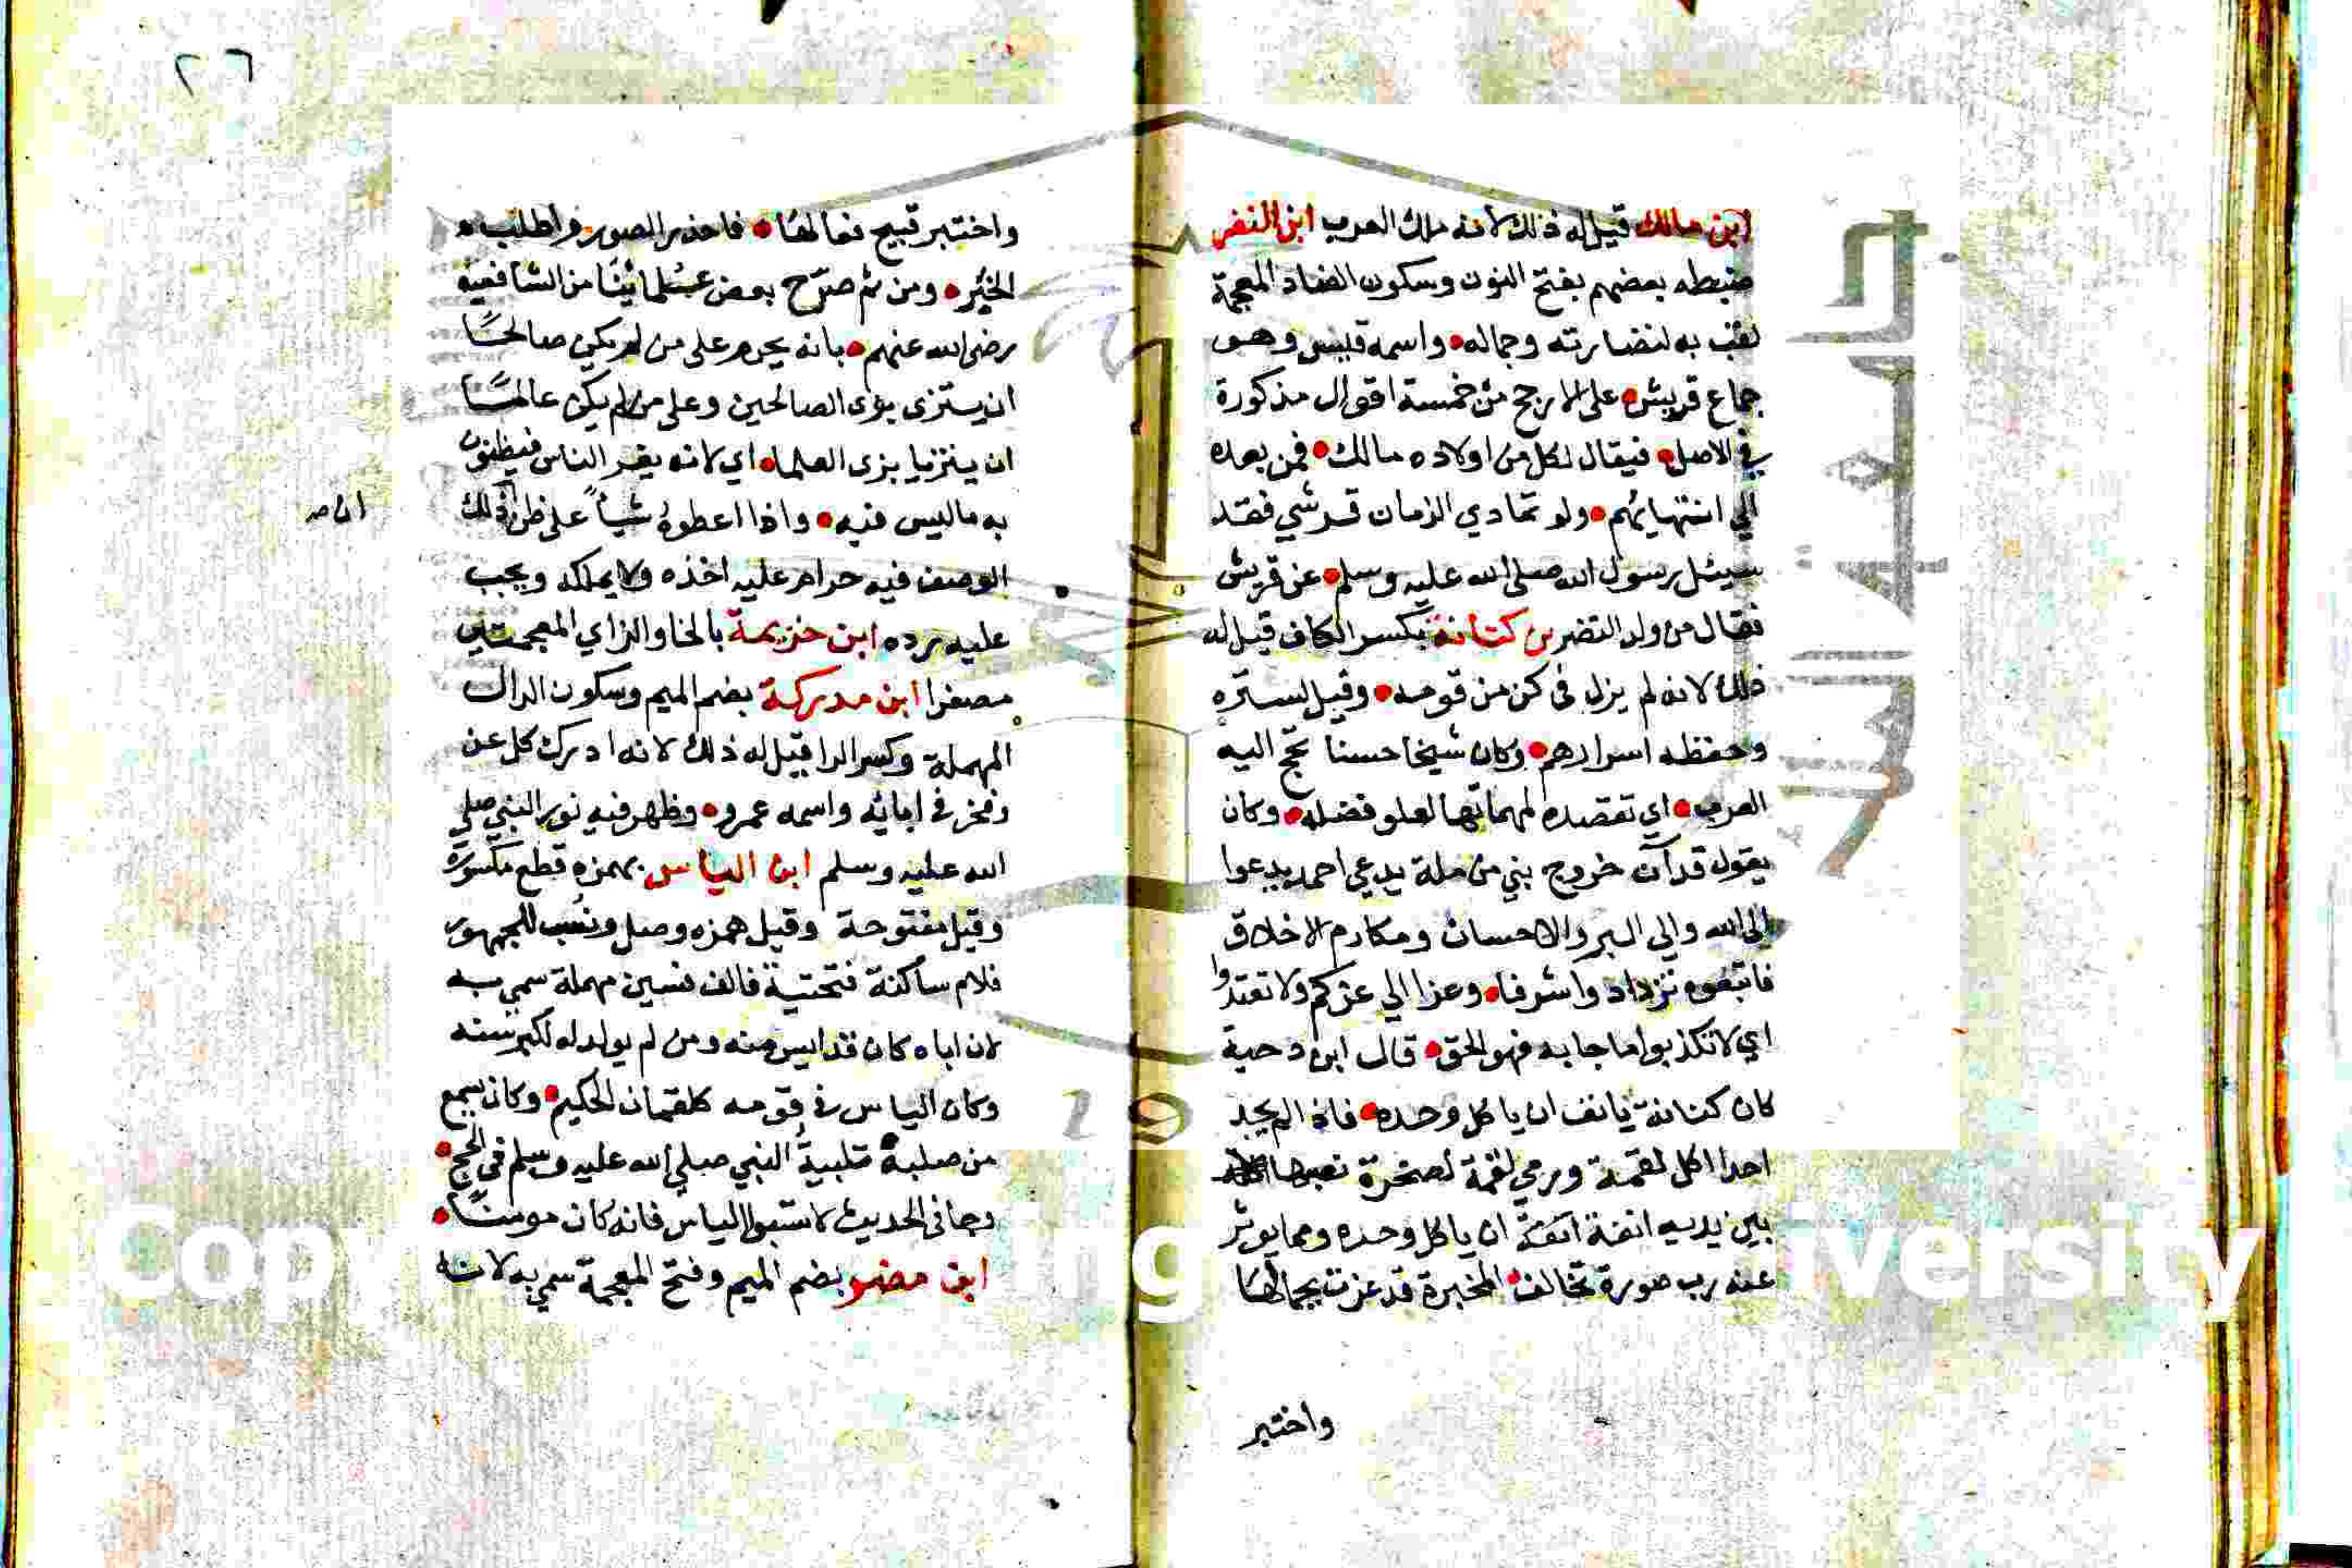 ابن مالك قيل له ذلك لانه ملك العرب ابن النضر
ضبطه بعضهم بفتح النون وسكون الضاد المعجمة
لقب به لنضارته وجماله واسمه قيس وهو
جماع قريش على الارجح من خمسة اقوال مذكورة
في الاصل فيقال لكل من اولاده مالك فمن بعده
الي انتهايهم ولو تمادي الزمان قرشي فقد
سيئل رسول الله صلى الله عليه وسلم عن قريش
فقال من ولد النضر بن كنانة بكسر الكاف قيل له
ذلك لانه لم يزل في كن من قومه وقيل لستره
وحفظه اسرارهم وكان شيخا حسنا تحج اليه
العرب اي تقصده لمهماتها لعلو فضله وكان
يقول قد آن خروج نبي من ملة يدعي احمد يدعوا
الى الله والى البر والاحسان ومكارم الاخلاق
فاتبعوه تزداد واشرفا وعزا الي عزكم ولا تعتدوا
اي لا تكذبوا ما جا به فهو الحق قال ابن دحية
كان كنانة يانف ان ياكل وحده فاذا لم يجد
احدا اكل لقمة ورمي لقمة لصخرة
بين يديه انفة ان ياكل وحده ومما يوثر
عنه رب صورة تخالف المخبرة قد غرت بجمالها
واختبر
٢٦
واختبر قبيح فعالها فاحذر الصور واطلب
الخبر ومن ثم صرح بعض علمائنا من الشافعية
رضى الله عنهم بانه يحرم على من لم يكن صالحا
ان يتزى بزى الصالحين وعلى من لم يكن عالما
ان يتزيا بزى العلما اي لانه يغر الناس فيظنون
به ما ليس فيه واذا اعطوه شيأ على ظن ذلك
ان صـ
الوصف فيه حرام عليه اخذه ولا يملكه ويجب
عليه رده ابن خزيمة بالخا والزاي المعجمتين
مصغرا ابن مدركة بضم الميم وسكون الدال
المهملة وكسر الرا قيل له ذلك لانه ادرك كل عن
وفخر في ابائه واسمه عمرو وظهر فيه نور النبي صلي
الله عليه وسلم ابن الياس بهمزه قطع مكسورة
وقيل مفتوحة وقيل همزه وصل ونسب للجمهور
فلام ساكنة فتحتية فالف فسين مهملة سمي به
لان اباه كان قد ايس منه ومن لم يولد له لكبر سنه
وكان الياس في قومه كلقمان الحكيم وكان يسمع
من صلبه تلبية النبي صلي الله عليه وسلم في الحج
وجا في الحديث لا تسبوا الياس فانه كان مومنا
ابن مضر بضم الميم وفتح المعجمة سمي به لانه